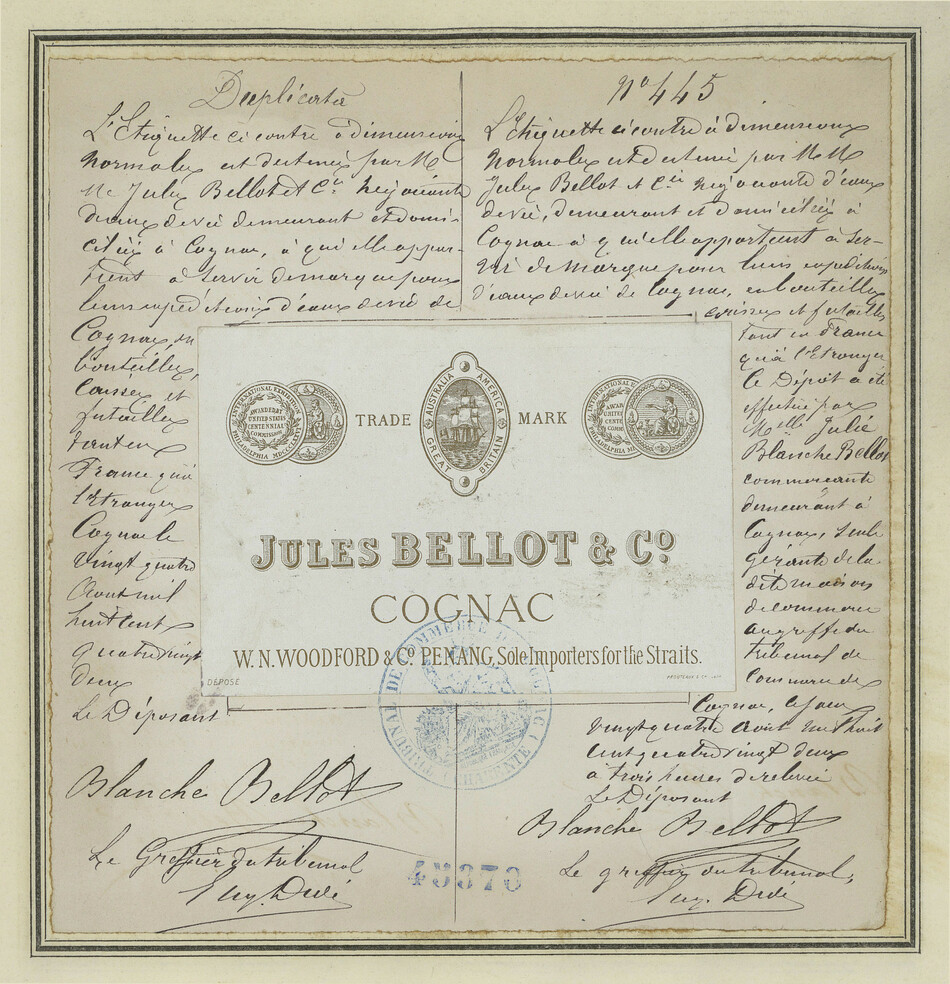 Duplicata
L'Etiquette ci contre à dimensions
normales est destinée par M
Mrs Jules Bellot et Cie négociants
d'eaux de vie demeurant et domi-
ciliés à Cognac, à qui elle appar-
tient à servir de marque pour
leurs expéditions d'eaux de vie de
Cognac en
bouteilles,
caisses et
futailles
tant en
France qu'à
l'Etranger
Cognac le
vingt quatre
Aout mil
huit cent
quatre vingt
deux
Le Déposant
Blanche Bellot
Le Greffier du tribunal
Eug. Didé
No 445
L'Etiquette ci contre à dimensions
normales est destinée par M M
Jules Bellot et Cie négociants d'eaux
de vie, demeurant et domiciliés à
Cognac à qui elle appartient à ser-
vir de marque pour leurs expéditions
d'eaux de vie de Cognac, en bouteilles
caisses et futailles
tant en France
qu'à l'Etranger
Le Dépôt a été
effectué par
Melle Julie
Blanche Bellot
commerçante
demeurant à
Cognac, seule
gérante de la
dite maison
de commerce
au greffe du
tribunal de
Commerce de
Cognac, le jour
vingt quatre Aout mil huit
cent quatre vingt deux
à trois heures de relevée
Le Déposant
Blanche Bellot
Le greffier du tribunal,
Eug. Didé
INTERNATIONAL EXHIBITION
PHILADELPHIA MDCCCLXXVI
AWARDED BY
UNITED STATES
CENTENNIAL
COMMISSION
TRADE
AUSTRALIA
AMERICA
GREAT
BRITAIN
MARK
JULES BELLOT & Co
COGNAC
W. N. WOODFORD & Co PENANG, Sole Importers for the Straits.
DÉPOSÉ
TRIBUNAL DE COMMERCE DE COGNAC
CHARENTE
45370